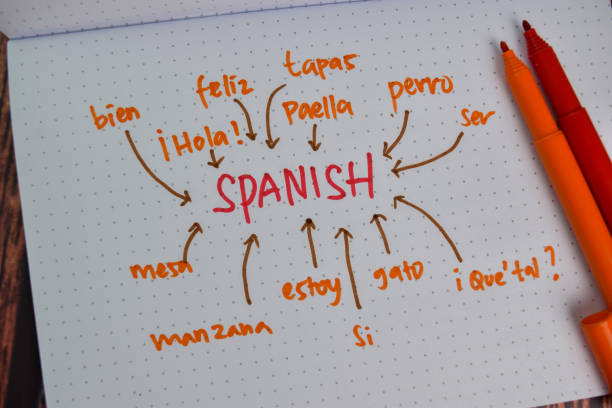 tapas
feliz
perro
bien
Paella
ser
¡Hola!
SPANISH
mesa
gato
¡ Que'tal?
estoy
manzana
Si